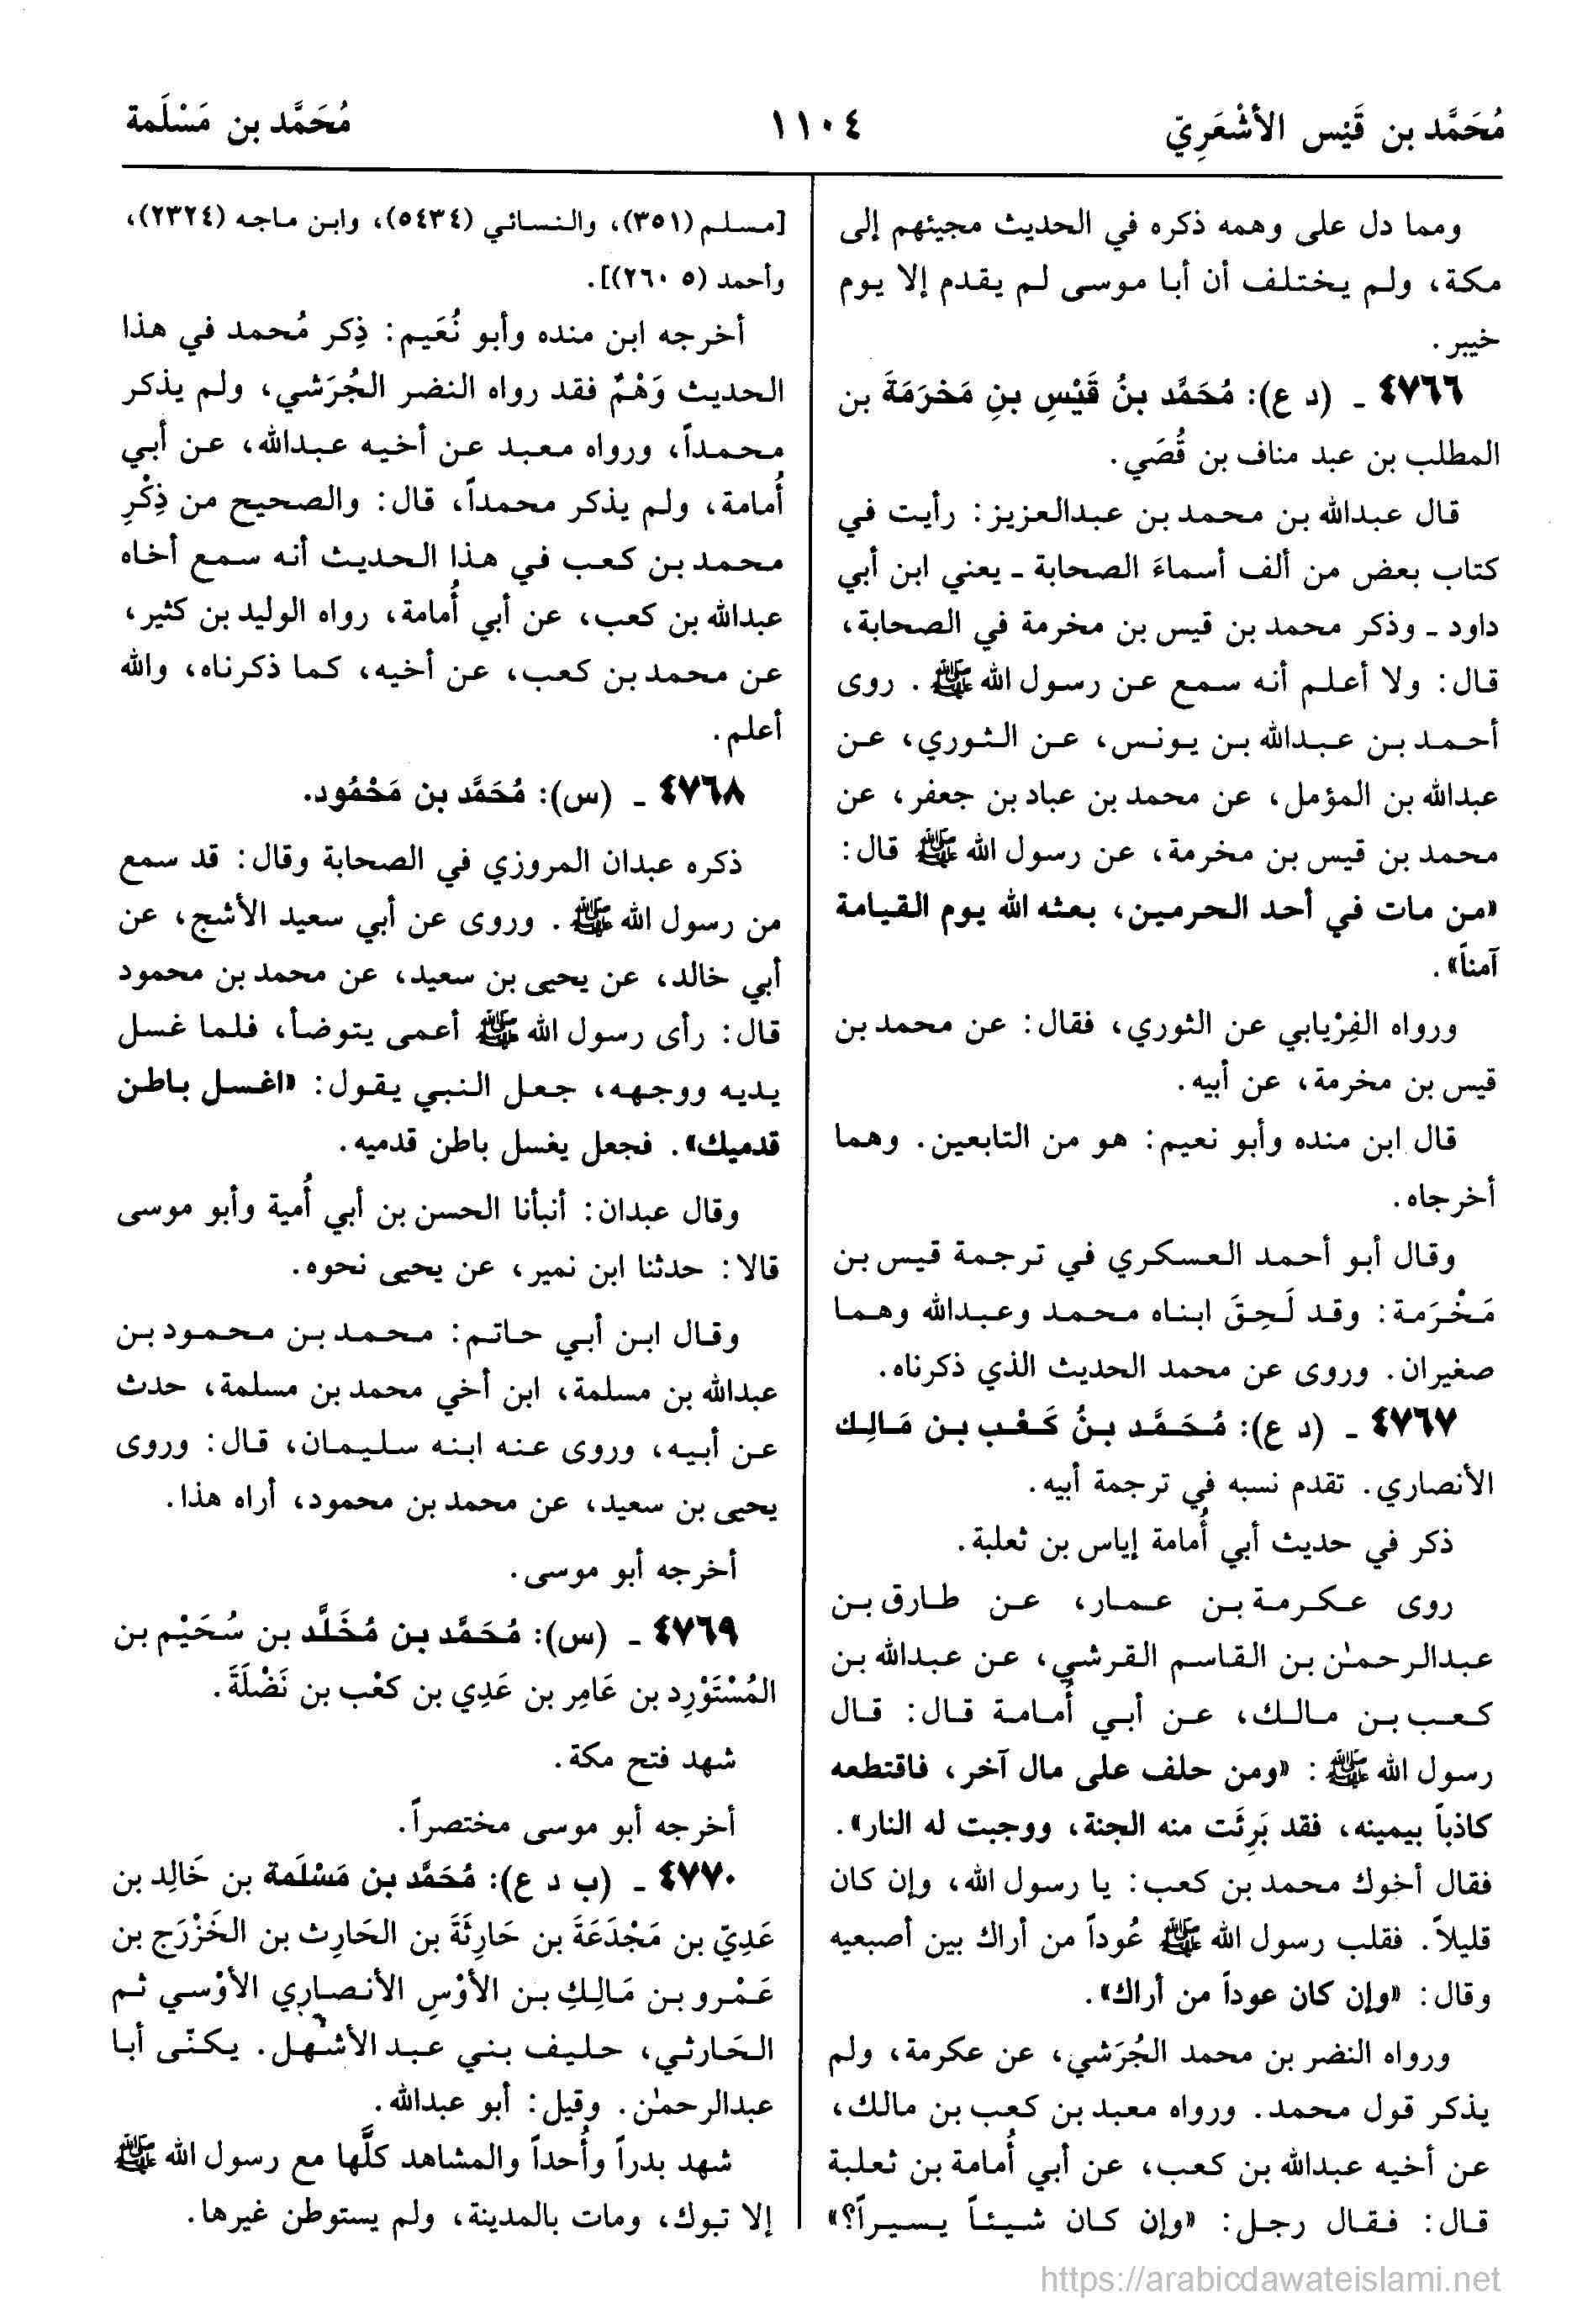 مُحَمَّد بن قَيْس الأشْعَرِيّ
١١٠٤
مُحَمَّد بن مَسْلَمة
ومما دل على وهمه ذكره في الحديث مجيئهم إلى
مكة، ولم يختلف أن أبا موسى لم يقدم إلا يوم
خيبر.
٤٧٦٦ ـ (د ع): مُحَمَّد بنُ قَيْسِ بنِ مَخرَمَةَ بن
المطلب بن عبد مناف بن قُصَي.
قال عبدالله بن محمد بن عبدالعزيز: رأيت في
كتاب بعض من ألف أسماءَ الصحابة ـ يعني ابن أبي
داود ـ وذكر محمد بن قيس بن مخرمة في الصحابة،
قال: ولا أعلم أنه سمع عن رسول الله ﷺ. روى
أحمد بن عبدالله بن يونس، عن الثوري، عن
عبدالله بن المؤمل، عن محمد بن عباد بن جعفر، عن
محمد بن قيس بن مخرمة، عن رسول الله ﷺ قال:
«من مات في أحد الحرمين، بعثه الله يوم القيامة
آمناً».
ورواه الفِرْيابي عن الثوري، فقال: عن محمد بن
قيس بن مخرمة، عن أبيه.
قال ابن منده وأبو نعيم: هو من التابعين. وهما
أخرجاه.
وقال أبو أحمد العسكري في ترجمة قيس بن
مَخْرَمة: وقد لَحِقَ ابناه محمد وعبدالله وهما
صغيران. وروى عن محمد الحديث الذي ذكرناه.
٤٧٦٧ ـ (د ع): مُحَمَّد بنُ كَعْب بن مَالِك
الأنصاري. تقدم نسبه في ترجمة أبيه.
ذكر في حديث أبي أُمامة إياس بن ثعلبة.
روى عكرمة بن عمار، عن طارق بن
عبدالرحمٰن بن القاسم القرشي، عن عبدالله بن
كعب بن مالك، عن أبي أُمامة قال: قال
رسول الله ﷺ: «ومن حلف على مال آخر، فاقتطعه
كاذباً بيمينه، فقد بَرِئَت منه الجنة، ووجبت له النار».
فقال أخوك محمد بن كعب: يا رسول الله، وإن كان
قليلاً. فقلب رسول الله ﷺ عُوداً من أراك بين أصبعيه
وقال: «وإن كان عوداً من أراك».
ورواه النضر بن محمد الجُرَشي، عن عكرمة، ولم
يذكر قول محمد. ورواه معبد بن كعب بن مالك،
عن أخيه عبدالله بن كعب، عن أبي أُمامة بن ثعلبة
قال: فقال رجل: «وإن كان شيئاً يسيراً؟»
[مسلم (٣٥١)، والنسائي (٥٤٣٤)، وابن ماجه (٢٣٢٤)،
وأحمد (٥ ٢٦٠)].
أخرجه ابن منده وأبو نُعَيم: ذِكر مُحمد في هذا
الحديث وَهْمٌ فقد رواه النضر الجُرَشي، ولم يذكر
محمداً، ورواه معبد عن أخيه عبدالله، عن أبي
أُمامة، ولم يذكر محمداً، قال: والصحيح من ذِكْرِ
محمد بن كعب في هذا الحديث أنه سمع أخاه
عبدالله بن كعب، عن أبي أُمامة، رواه الوليد بن كثير،
عن محمد بن كعب، عن أخيه، كما ذكرناه، والله
أعلم.
٤٧٦٨ ـ (س): مُحَمَّد بن مَحْمُود.
ذكره عبدان المروزي في الصحابة وقال: قد سمع
من رسول الله ﷺ. وروى عن أبي سعيد الأشج، عن
أبي خالد، عن يحيى بن سعيد، عن محمد بن محمود
قال: رأى رسول الله ﷺ أعمى يتوضأ، فلما غسل
يديه ووجهه، جعل النبي يقول: «اغسل باطن
قدميك». فجعل يغسل باطن قدميه.
وقال عبدان: أنبأنا الحسن بن أبي أُمية وأبو موسى
قالا: حدثنا ابن نمير، عن يحيى نحوه.
وقال ابن أبي حاتم: محمد بن محمود بن
عبدالله بن مسلمة، ابن أخي محمد بن مسلمة، حدث
عن أبيه، وروى عنه ابنه سليمان، قال: وروى
يحيى بن سعيد، عن محمد بن محمود، أراه هذا.
أخرجه أبو موسى.
٤٧٦٩ ـ (س): مُحَمَّد بن مُخَلَّد بن سُحَيْم بن
المُسْتَوْرِد بن عَامِر بن عَدِي بن كعْب بن نَضْلَةَ.
شهد فتح مكة.
أخرجه أبو موسى مختصراً.
٤٧٧٠ ـ (ب د ع): مُحَمَّد بن مَسْلَمة بن خَالِد بن
عَدِيّ بن مَجْدَعَةَ بن حَارِثَةَ بن الحَارِث بن الخَزْرَج بن
عَمْرو بن مَالِكِ بن الأوْسِ الأنصاري الأوْسي ثم
الحَارثي، حليف بني عبد الأشهل. يكنّى أبا
عبدالرحمٰن. وقيل: أبو عبدالله.
شهد بدراً وأُحداً والمشاهد كلَّها مع رسول الله ﷺ
إلا تبوك، ومات بالمدينة، ولم يستوطن غيرها.
https://arabicdawateislami.net